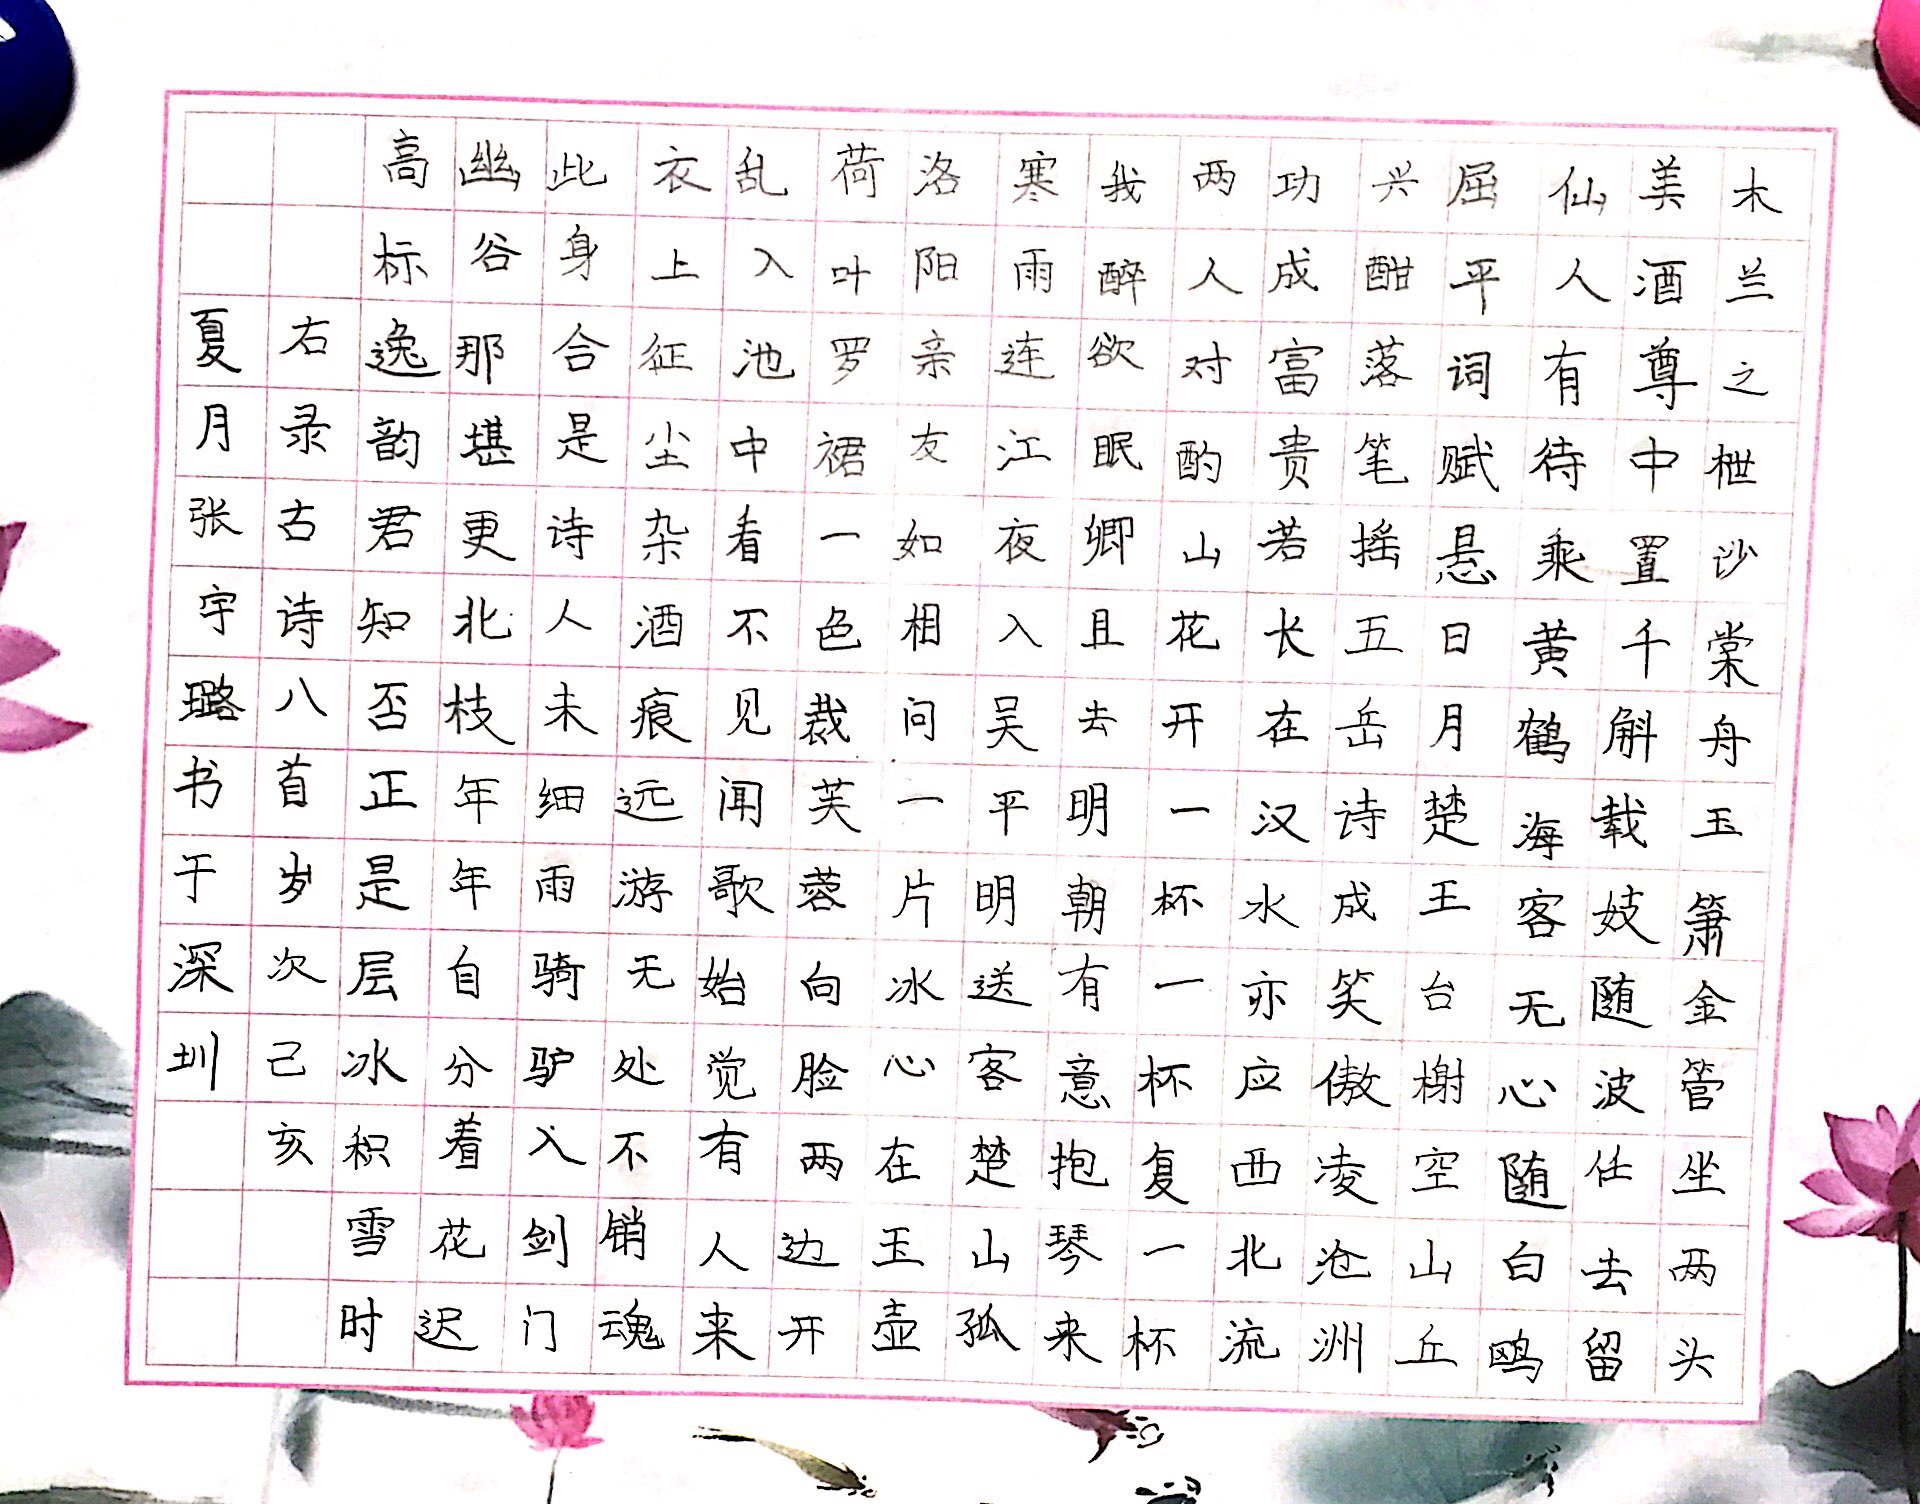 木兰之枻沙棠舟玉箫金管坐两头
美酒尊中置千斛载妓随波任去留
仙人有待乘黄鹤海客无心随白鸥
屈平词赋悬日月楚王台榭空山丘
兴酣落笔摇五岳诗成笑傲凌沧洲
功成富贵若长在汉水亦应西北流
两人对酌山花开一杯一杯复一杯
我醉欲眠卿且去明朝有意抱琴来
寒雨连江夜入吴平明送客楚山孤
洛阳亲友如相问一片冰心在玉壶
荷叶罗裙一色裁芙蓉向脸两边开
乱入池中看不见闻歌始觉有人来
衣上征尘杂酒痕远游无处不销魂
此身合是诗人未细雨骑驴入剑门
幽谷那堪更北枝年年自分着花迟
高标逸韵君知否正是层冰积雪时
右录古诗八首岁次己亥
夏月张宇璐书于深圳